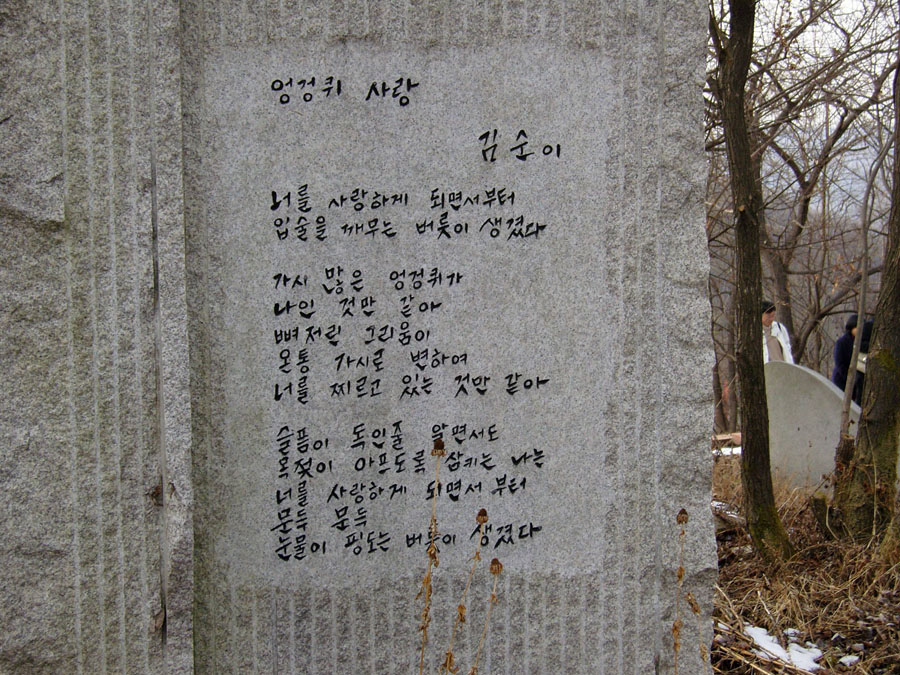 엉겅퀴 사랑
김순이
너를 사랑하게 되면서부터
입술을 깨무는 버릇이 생겼다
가시 많은 엉겅퀴가
나인 것만 같아
뼈저린 그리움이
온통 가시로 변하여
너를 찌르고 있는 것만 같아
슬픔이 독인줄 알면서도
목젖이 아프도록 삼키는 나는
너를 사랑하게 되면서부터
문득 문득
눈물이 핑도는 버릇이 생겼다